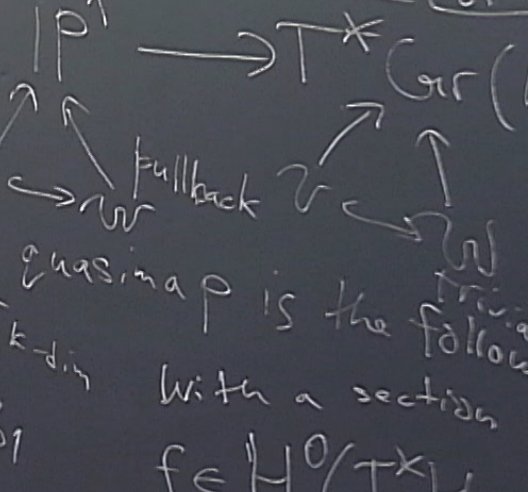 ℙ¹ → T* Gr(
𝒲 pullback 𝒱 ↪ 𝒲
quasimap is the follow
k-dim with a section
f ∈ H⁰(T*